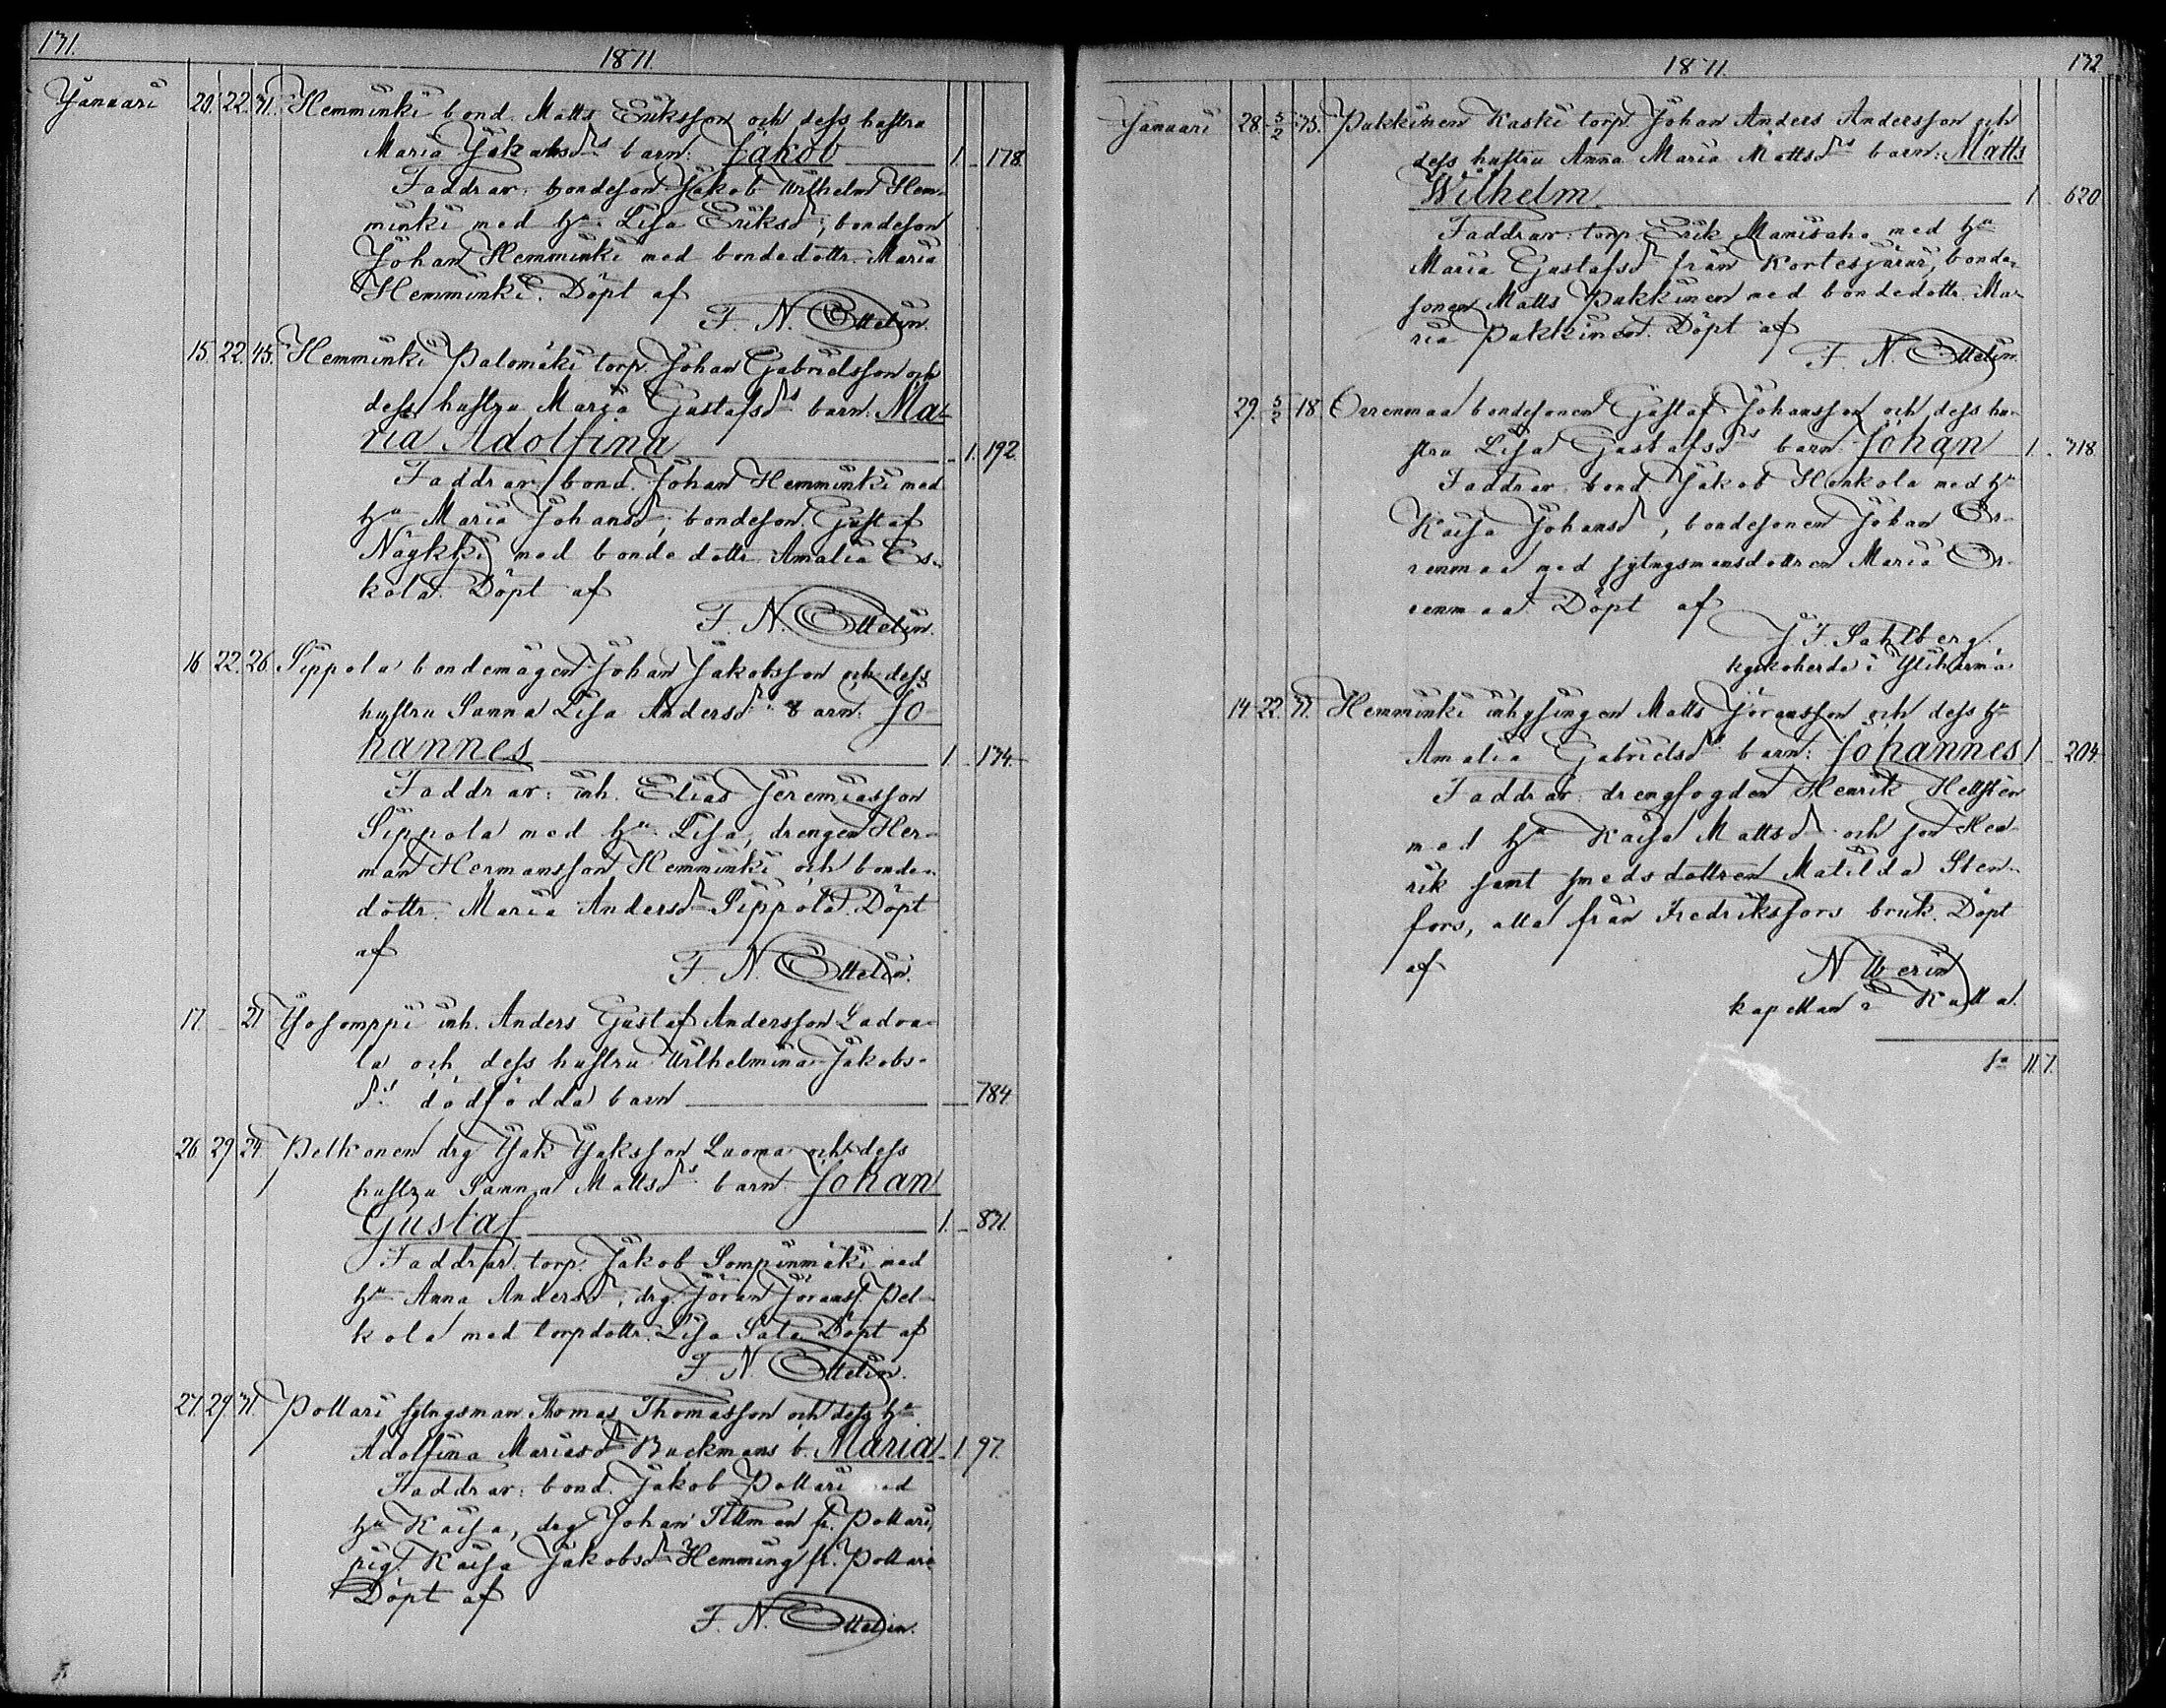 131.
1871.
Januari 20. 22. 31. Hemminki bond. Matts Eriksson och dess hustru
Maria Jakobsdrs barn: Jakob 1. 178.
Faddrar: bondeson Jakob Wilhelm Hem-
minki med hu Lisa Eriksdr, bondeson
Johan Hemminki med bondedottr. Maria
Hemminki. Döpt af
F. N. Ottelin.
15. 22. 45. Hemminki Palomäki torp. Johan Gabrielsson och
dess hustru Maria Gustafsdrs barn: Ma-
ria Adolfina 1. 192.
Faddrar bond. Johan Hemminki med
hu Maria Johansdr, bondeson Gustaf
Näykki med bonde dottr. Amalia Es-
kola. Döpt af
F. N. Ottelin.
16 22. 26. Sippola bondemågen Johan Jakobsson och dess
hustru Sanna Lisa Andersdrs barn: Jo-
hannes 1. 134.
Faddrar: inh. Elias Jeremiasson
Sippola med hu Lisa, drengen Her-
man Hermansson Hemminki och bonde-
dottr. Maria Andersdr Sippola. Döpt
af
F. N. Ottelin.
17. 21 Ylisomppi inh. Anders Gustaf Andersson Ladva-
la och dess hustru Wilhelmina Jakobs-
drs dödfödda barn 784.
26 29 24 Pelkonen drg Jak Jaksson Luoma och dess
hustru Sanna Mattsdrs barn Johan
Gustaf 1. 831.
Faddrar: torp. Jakob Sompinmäki med
hu Anna Andersdr, drg. Jöran Jöranss. Pel-
kola med torpdottr. Lisa Sata Döpt af
F. N. Ottelin.
27. 29. 31. Pottari sytngsman Thomas Thomasson och dess hu
Adolfina Mariasdr Backmans b. Maria 1. 97.
Faddrar: bond. Jakob Pottari med
hu Kaisa, drg Johan Tillman fr. Pottari,
pig. Kaisa Jakobsdr Hemming fr. Pottari
Döpt af
F. N. Ottelin.
1871.
132.
Januari 28. 5/2 35. Pakkinen Kaski torp. Johan Anders Andersson och
dess hustru Anna Maria Mattsdrs barn: Matts
Wilhelm. 1 620
Faddrar: torp. Erik Manisaho med hu
Maria Gustafsdr från Kortesjärvi, bonde-
sonen Matts Pakkinen med bondedottr. Ma-
ria Pakkinen. Döpt af
F. N. Ottelin.
29. 5/2 18. Orrenmaa bondesonen Gustaf Johansson och dess hu-
stru Lisa Gustafsdrs barn Johan 1. 718
Faddrar bond Jakob Honkola med hu
Kaisa Johansdr, bondesonen Johan Or-
renmaa med sytngsmansdottren Maria Or-
renmaa. Döpt af
J. F. Sahlberg.
kyrkoherde i Ylihärmä
14 22. 31. Hemminki inhysingen Matts Jöransson och dess hu
Amalia Gabrielsdrs barn: Johannes 1. 204.
Faddrar: drengfogden Henrik Hellsten
med hu Kaisa Mattsdr och son Hen-
rik samt smedsdottren Matilda Sten-
fors, alla från Fredriksfors bruk. Döpt
af
kapellan i
Sa 11. 7.